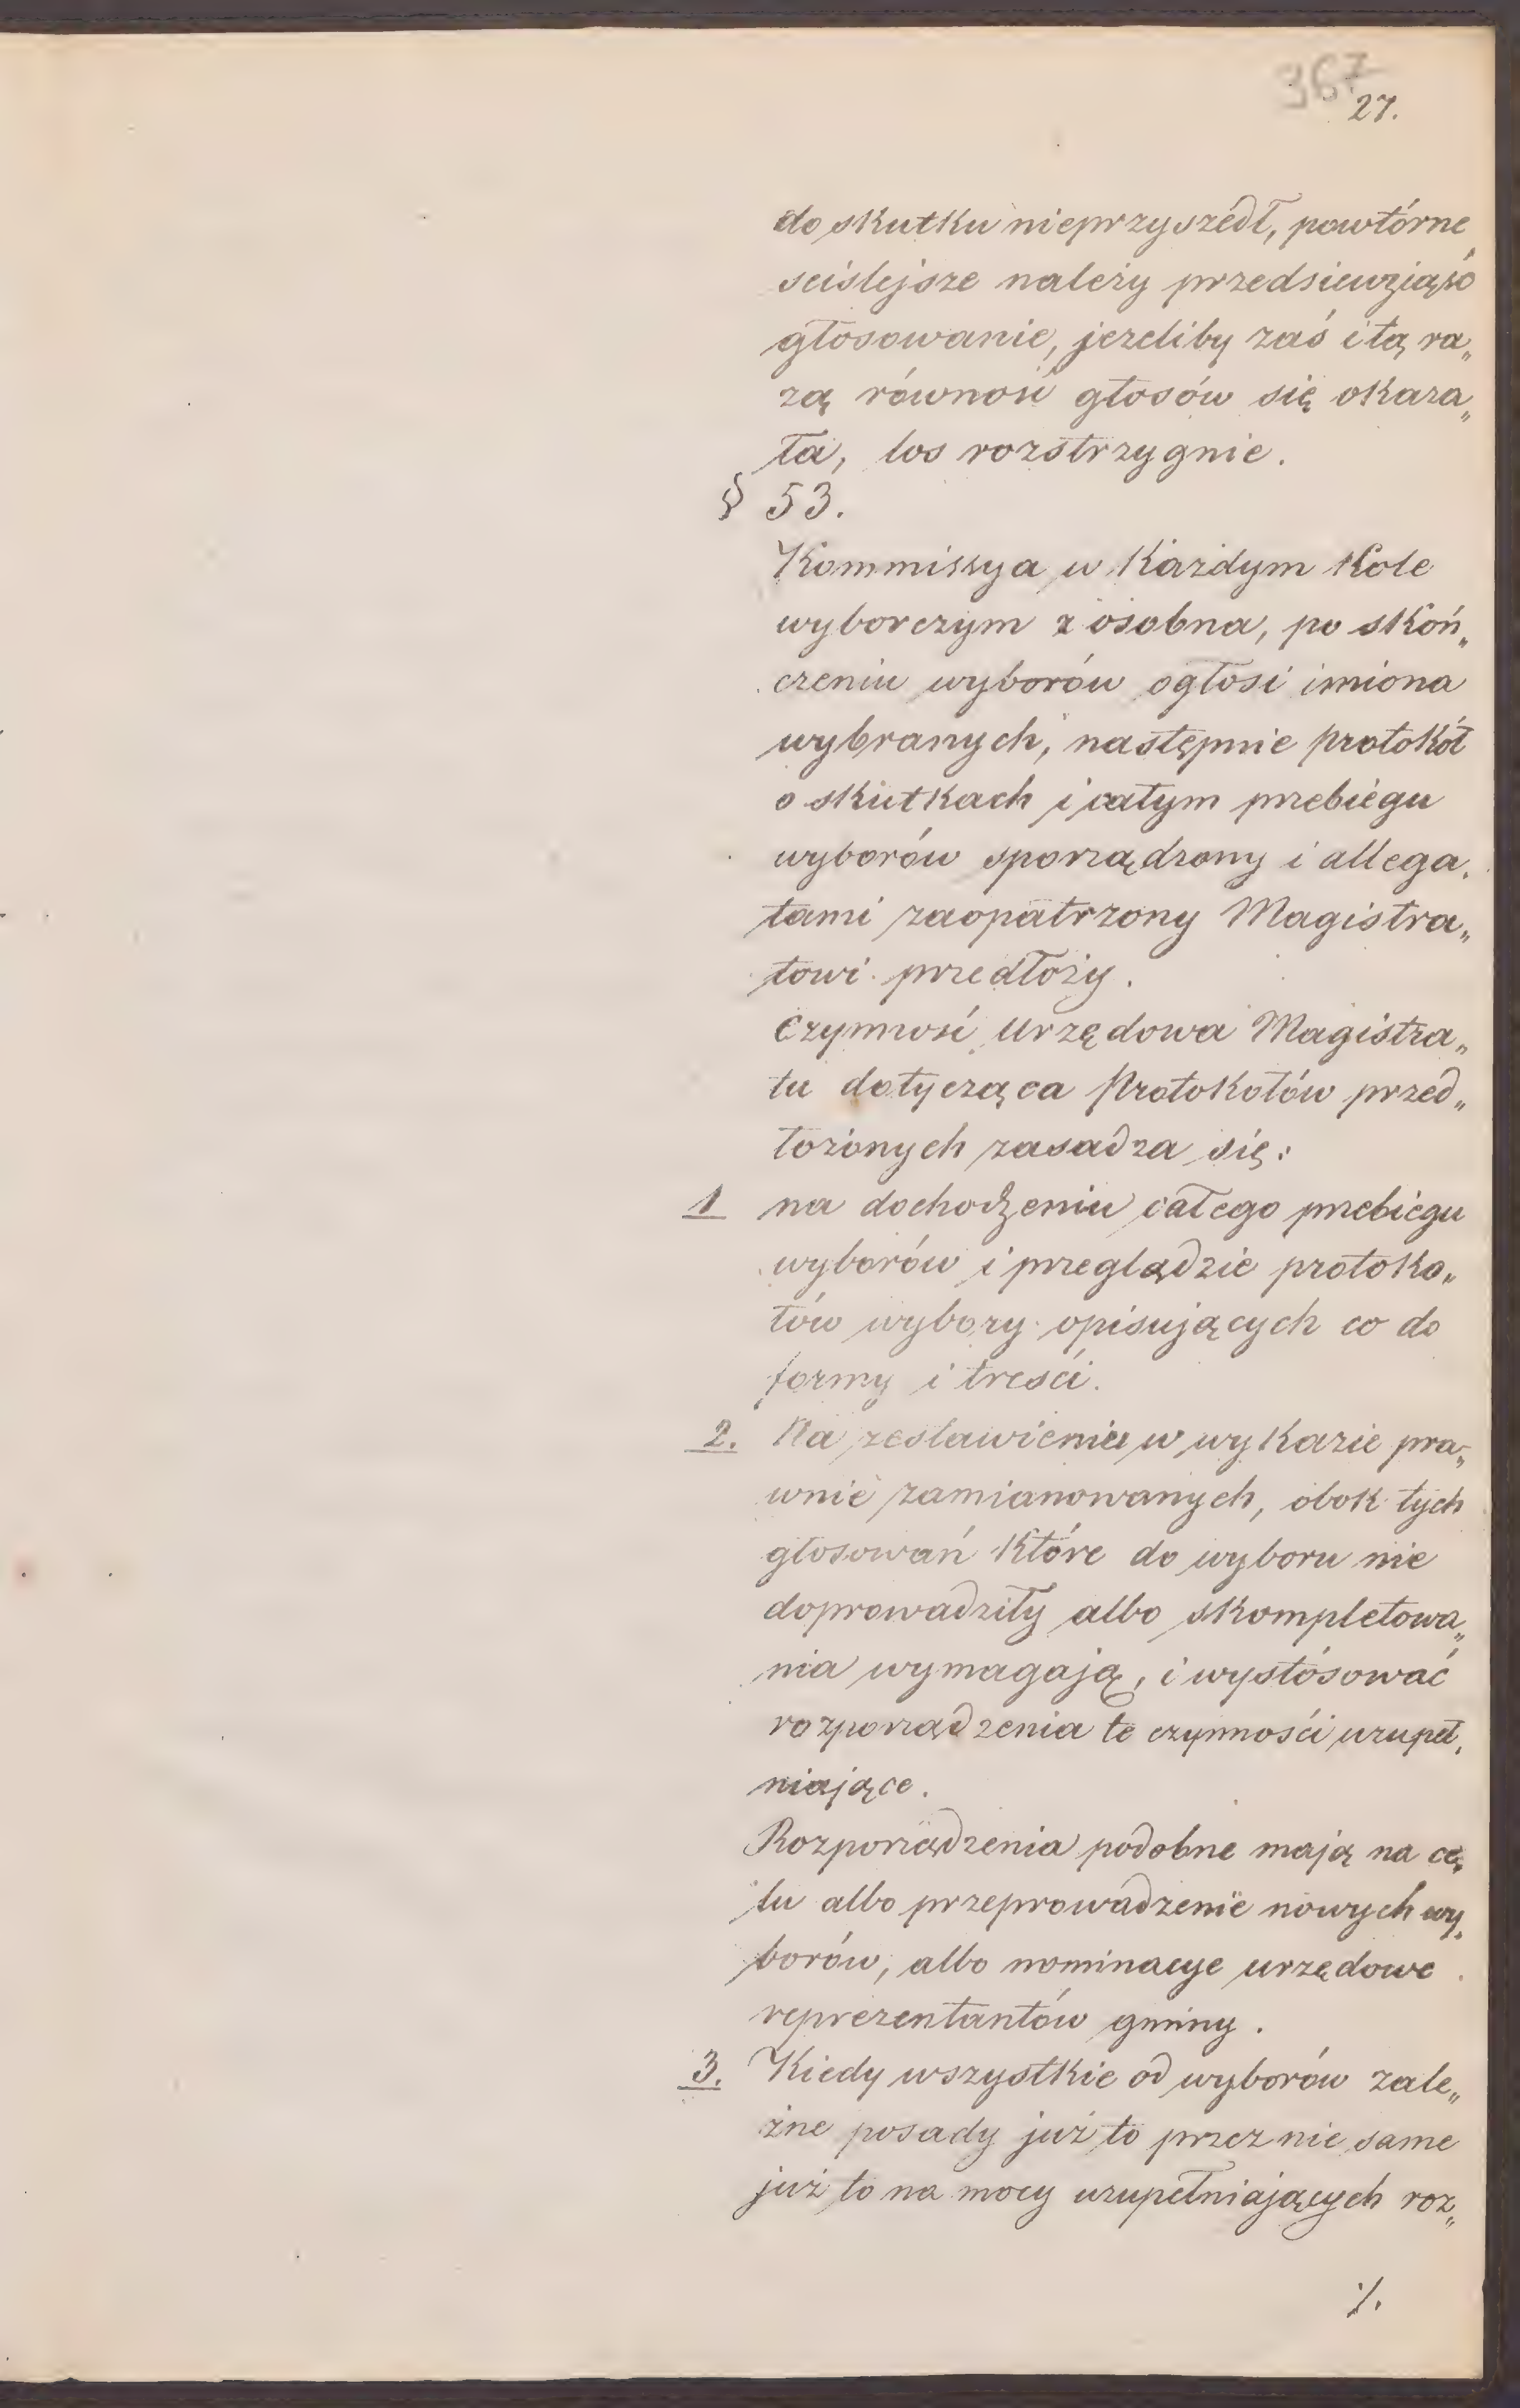 367
27.
do skutku nieprzyszedł, powtórne
ściślejsze należy przedsiewziąść
głosowanie, jezeliby zaś i tą ra„
zą równość głosów się okaza„
ła, los rozstrzygnie.
§ 53.
Kommissya w każdym kole
wyborczym z osobna, po skoń„
czeniu wyborów ogłosi imiona
wybranych, następnie protokół
o skutkach i całym przebiegu
wyborów sporządzony i allega„
tami zaopatrzony Magistra„
towi przedłoży.
Czynność Urzędowa Magistra„
tu dotycząca Protokołów przed„
łożonych zasadza się:
1 na dochodzeniu całego przebiegu
wyborów i przeglądzie protoko„
łów wybory opisujących co do
formy i treści.
2. Na zestawieniu w wykazie pra„
wnie zamianowanych, obok tych
głosowań które do wyboru nie
doprowadziły albo skompletowa„
nia wymagają, i wystósować
rozporządzenia te czynności uzupeł„
niające.
Rozporządzenia podobne mają na ce„
lu albo przeprowadzenie nowych wy„
borów, albo nominacye urzędowe
reprezentantów gminy.
3. Kiedy wszystkie od wyborów zale„
żne posady już to przez nie same
już to na mocy uzupełniających roz„
./.